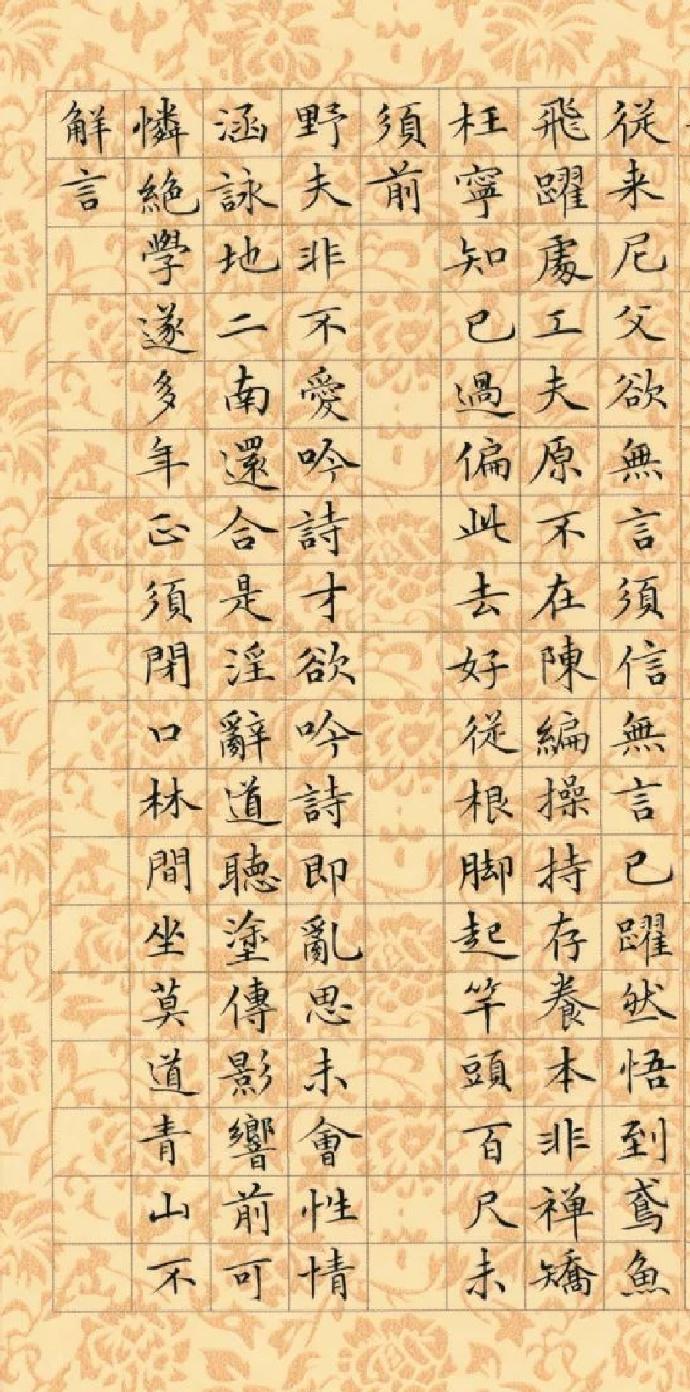 従来尼父欲無言須信無言已躍然悟到鳶魚
飛躍處工夫原不在陳編操持存養本非禅矯
枉寧知已過偏此去好従根脚起竿頭百尺未
須前
野夫非不愛吟詩才欲吟詩即亂思未會性情
涵詠地二南還合是淫辭道聽塗傳影響前可
憐絶學遂多年正須閉口林間坐莫道青山不
解言